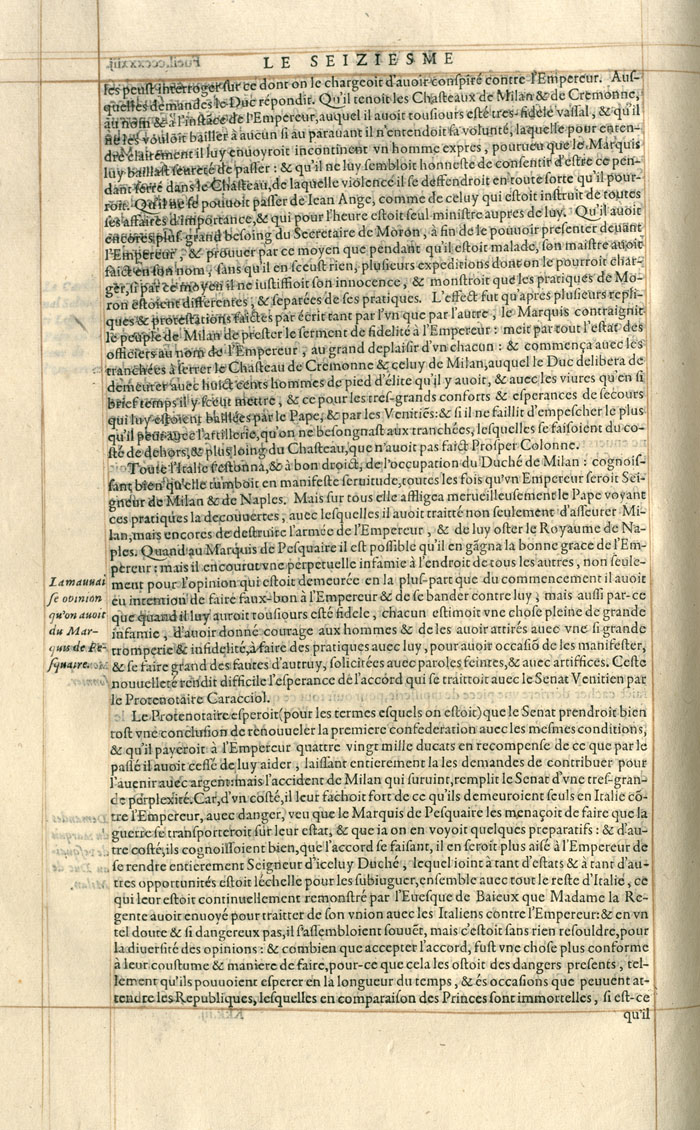 LE SEIZIESME
les peust interroger sur ce dont on le chargeoit d'auoir conspiré contre l'Empereur. Aus-
quelles demandes le Duc répondit. Qu'il tenoit les Chasteaux de Milan & de Cremonne,
au nom & à l'instãce de l'Empereur, auquel il auoit tousiours esté tres-fidele vassal, & qu'il
ne les vouloit bailler à aucun si au parauant il n'entendoit sa volunté, laquelle pour enten-
dre clairement il luy enuoyroit incontinent vn homme expres, pourueu que le Marquis
luy baillast seureté de passer : & qu'il ne luy sembloit honneste de consentir d'estre ce pen-
dant serré dans le Chasteau, de laquelle violence il se deffendroit en toute sorte qu'il pour-
roit. Qu'il ne se pouuoit passer de Iean Ange, comme de celuy qui estoit instruit de toutes
ses affaires d'importance, & qui pour l'heure estoit seul ministre aupres de luy. Qu'il auoit
encores plus grand besoing du Secretaire de Moron, à fin de le pouuoir presenter deuant
l'Empereur, & prouuer par ce moyen que pendant qu'il estoit malade, son maistre auoit
faict en son nom, sans qu'il en sceust rien, plusieurs expeditions dont on le pourroit char-
ger, si par ce moyen il ne iustifioit son innocence, & monstroit que les pratiques de Mo-
ron estoient differentes, & separées de ses pratiques. L'effect fut qu'apres plusieurs repli-
ques & protestations faictes par écrit tant par l'vn que par l'autre, le Marquis contraignit
le peuple de Milan de prester le serment de fidelité à l'Empereur : meit par tout l'estat des
officiers au nom de l'Empereur, au grand deplaisir d'vn chacun : & commença auec les
tranchées à serrer le Chasteau de Cremonne & celuy de Milan, auquel le Duc delibera de
demeurer auec huict cents hommes de pied d'élite qu'il y auoit, & auec les viures qu'en si
brief temps il y sceut mettre, & ce pour les tres-grands conforts & esperances de secours
qui luy estoient baillées par le Pape, & par les Venitiẽs: & si il ne faillit d'empescher le plus
qu'il peut auec l'artillerie, qu'on ne besongnast aux tranchées, lesquelles se faisoient du co-
sté de dehors, & plus loing du Chasteau, que n'auoit pas faict Prosper Colonne.
Toute l'Italie s'estonna, & à bon droict, de l'occupation du Duché de Milan : cognois-
sant bien qu'elle tumboit en manifeste seruitude, toutes les fois qu'vn Empereur seroit Sei-
gneur de Milan & de Naples. Mais sur tous elle affligea merueilleusement le Pape voyant
ces pratiques la decouuertes, auec lesquelles il auoit traitté non seulement d'asseurer Mi-
lan, mais encores de destruire l'armée de l'Empereur, & de luy oster le Royaume de Na-
ples. Quand au Marquis de Pesquaire il est possible qu'il en gãgna la bonne grace de l'Em-
pereur : mais il encourut vne perpetuelle infamie à l'endroit de tous les autres, non seule-
ment pour l'opinion qui estoit demeurée en la plus-part que du commencement il auoit
eu intention de faire faux-bon à l'Empereur & de se bander contre luy, mais aussi par-ce
que quand il luy auroit tousiours esté fidele, chacun estimoit vne chose pleine de grande
infamie, d'auoir donné courage aux hommes & de les auoir attirés auec vne si grande
tromperie & infidelité, à faire des pratiques auec luy, pour auoir occasiõ de les manifester,
& se faire grand des fautes d'autruy, solicitées auec paroles feintes, & auec artiffices. Ceste
nouuelleté rendit difficile l'esperance de l'accord qui se traittoit auec le Senat Venitien par
le Protenotaire Caracciol.
La mauuai
se opinion
qu'on auoit
du Mar-
quis de Pe-
squaire.
Le Protenotaire esperoit (pour les termes esquels on estoit) que le Senat prendroit bien
tost vne conclusion de renouueler la premiere confederation auec les mesmes conditions,
& qu'il payeroit à l'Empereur quattre vingt mille ducats en recompense de ce que par le
passé il auoit cessé de luy aider, laissant entierement la les demandes de contribuer pour
l'auenir auec argent: mais l'accident de Milan qui suruint, remplit le Senat d'vne tres-gran-
de perplexité. Car, d'vn costé, il leur fachoit fort de ce qu'ils demeuroient seuls en Italie cõ-
tre l'Empereur, auec danger, veu que le Marquis de Pesquaire les menaçoit de faire que la
guerre se transporteroit sur leur estat, & que ia on en voyoit quelques preparatifs : & d'au-
tre costé, ils cognoissoient bien, que l'accord se faisant, il en seroit plus aisé à l'Empereur de
se rendre entierement Seigneur d'iceluy Duché, lequel ioint à tant d'estats & à tant d'au-
tres opportunités estoit léchelle pour les subiuguer, ensemble auec tout le reste d'Italie, ce
qui leur estoit continuellement remonstré par l'Euesque de Baieux que Madame la Re-
gente auoir enuoyé pour traitter de son vnion auec les Italiens contre l'Empereur: & en vn
tel doute & si dangereux pas, il s'assembloient souuẽt, mais c'estoit sans rien resouldre, pour
la diuersité des opinions : & combien que accepter l'accord, fust vne chose plus conforme
à leur coustume & maniere de faire, pour-ce que cela les ostoit des dangers presents, tel-
lement qu'ils pouuoient esperer en la longueur du temps, & és occasions que peuuent at-
tendre les Republiques, lesquelles en comparaison des Princes sont immortelles, si est-ce
qu'il